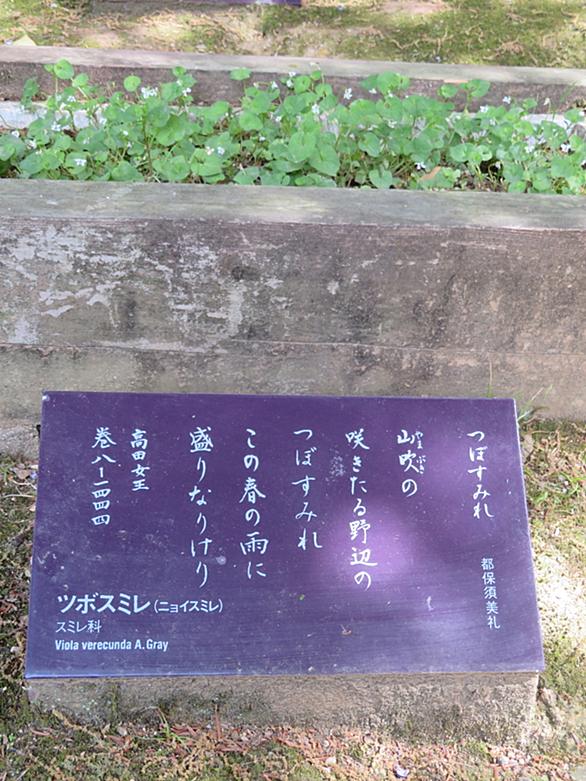 つぼすみれ
都保須美礼
山吹の
やまぶき
咲きたる野辺の
つぼすみれ
この春の雨に
盛りなりけり
高田女王
巻八ー一四四四
ツボスミレ(ニョイスミレ)
スミレ科
Viola verecunda A. Gray